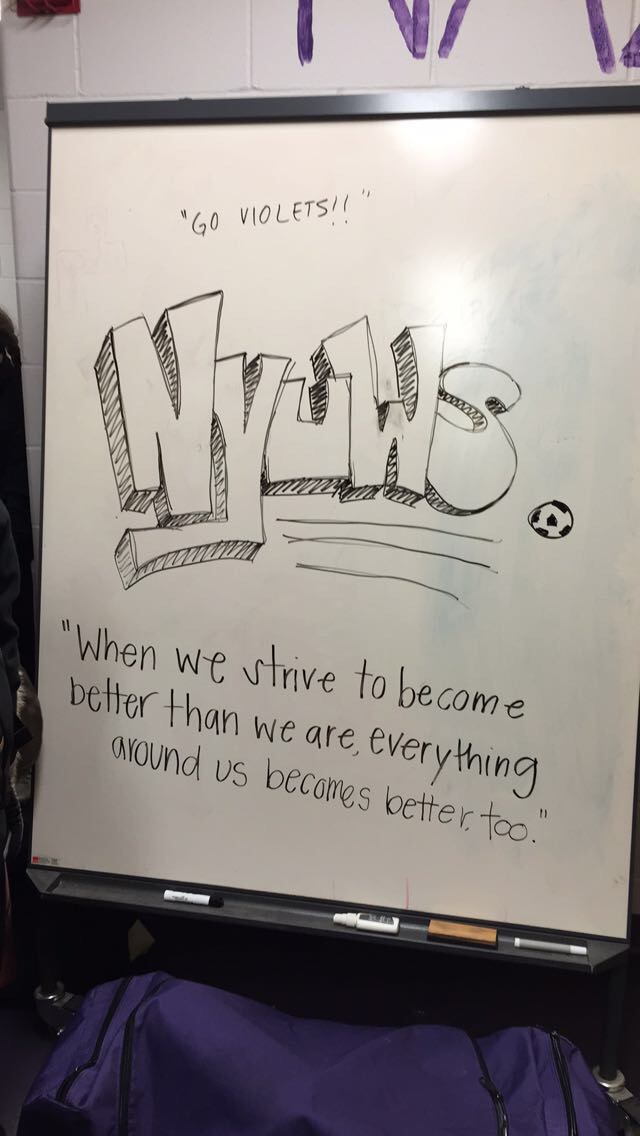 "GO VIOLETS!!"
NYUWS
"When we strive to become
better than we are, everything
around us becomes better, too."